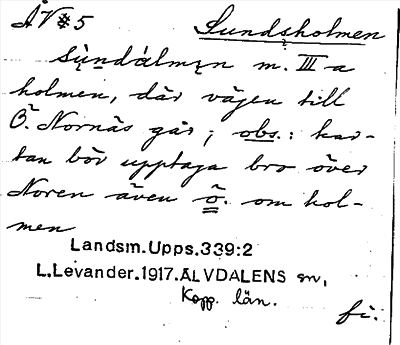 ÅV 5 Sundsholmen
sùndálmęn m. III a
holmen, där vägen till
Ö. Nornäs går; obs.: kar-
tan bör upptaga bro över
Noren även ö. om hol-
men
Landsm. Upps. 339:2
L. Levander. 1917. ÄLVDALENS sn,
Kopp. län.
fi.